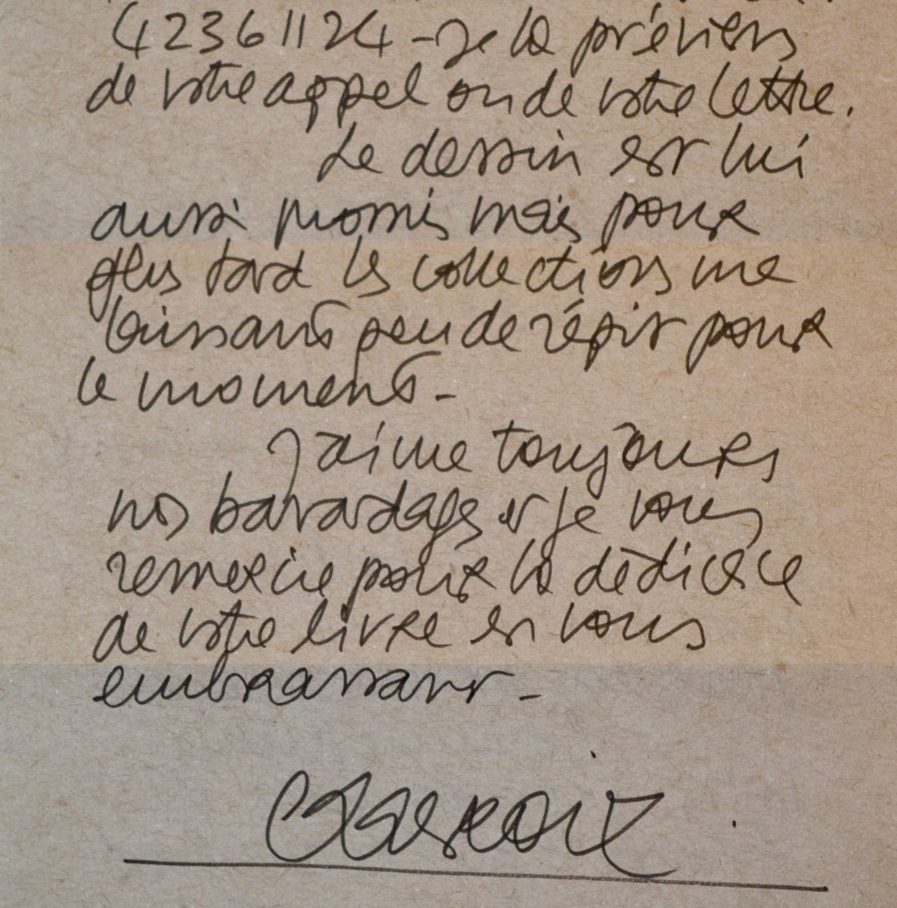 42361124 - Je la préviens
de votre appel ou de votre lettre.
Le dessin est lui
aussi promis mais pour
plus tard les collections me
laissant peu de répit pour
le moment -
J'aime toujours
nos bavardages et je vous
remercie pour la dédicace
de votre livre en vous
embrassant -